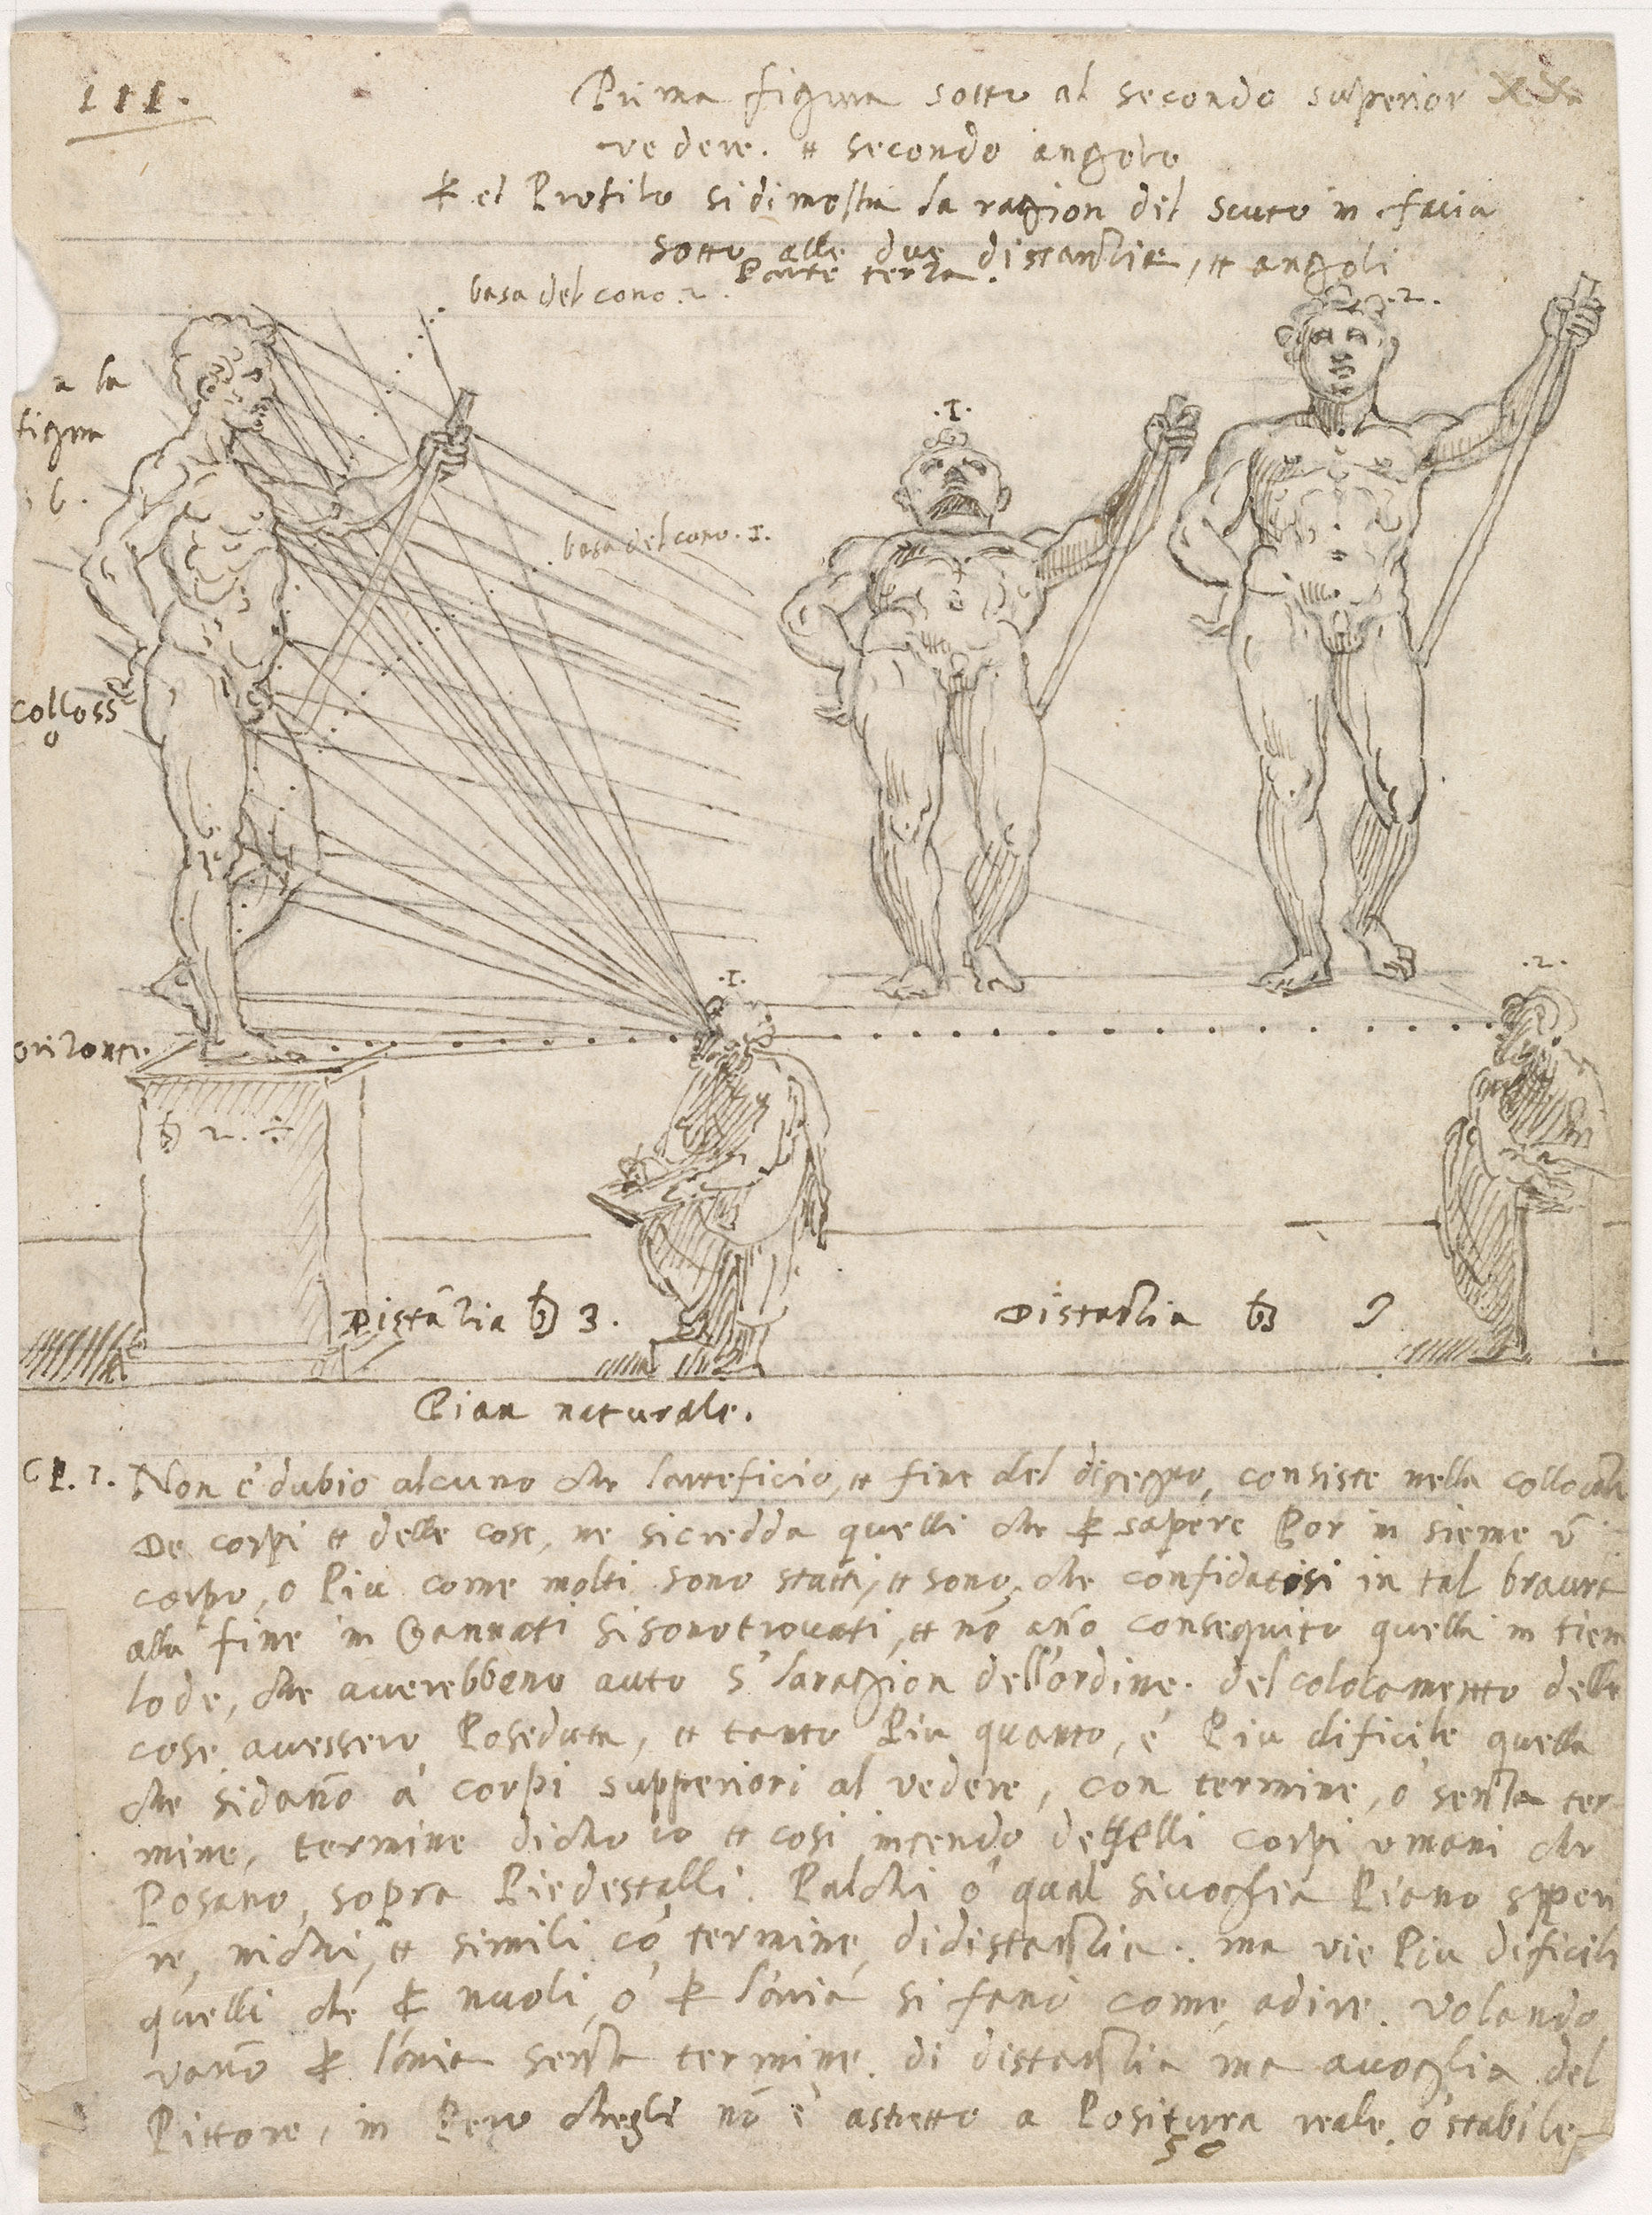 III.
Prima figura sotto al secondo superior
vedere. et secondo angolo
P el Profilo si dimostra la ragion del scurto in facia
sotto alle due distantie, et angoli
Parte terza.
basa del cono .2.
.2.
a la
figura
b.
.I.
basa del cono .I.
Colloss
o
.I.
.2.
orizonte.
2.
Distãtia 3.
Distantia
Pian naturale.
CP. I. Non è dubio alcuno che larteficio, et fine del disegno, consiste nella
De corpi et delle cose, ne si credda quelli che P sapere Por in sieme ũ
corpo, o Piu come molti sono statti, et sono, che confidatisi in tal
alla fine in Gannati si sono trovati, et nõ año conseguito quella in
lode, che averebbeno auto s' la ragion dell'ordine. del colocamento delle
cose avessero Poseduta, et tanto Piu quanto, è Piu dificile quella
che si dano à corpi supperiori al vedere, con termine, ò senza ter
mine, termine dicho io et cosi intendo corpi umani che
Posano, sopra Piedestalli. Palchi ò qual si voglia Piano
re, nichi, et simili cõ termine, di distantia. ma vie Piu dificili
quelli che P nuoli, ò P l'aria si fano come, a dire. volando
vano P l'aria senza termine. di distantia ma a voglia del
Pittore, in Pero chegli nõ è astretto a Positura reale. ò stabile
50